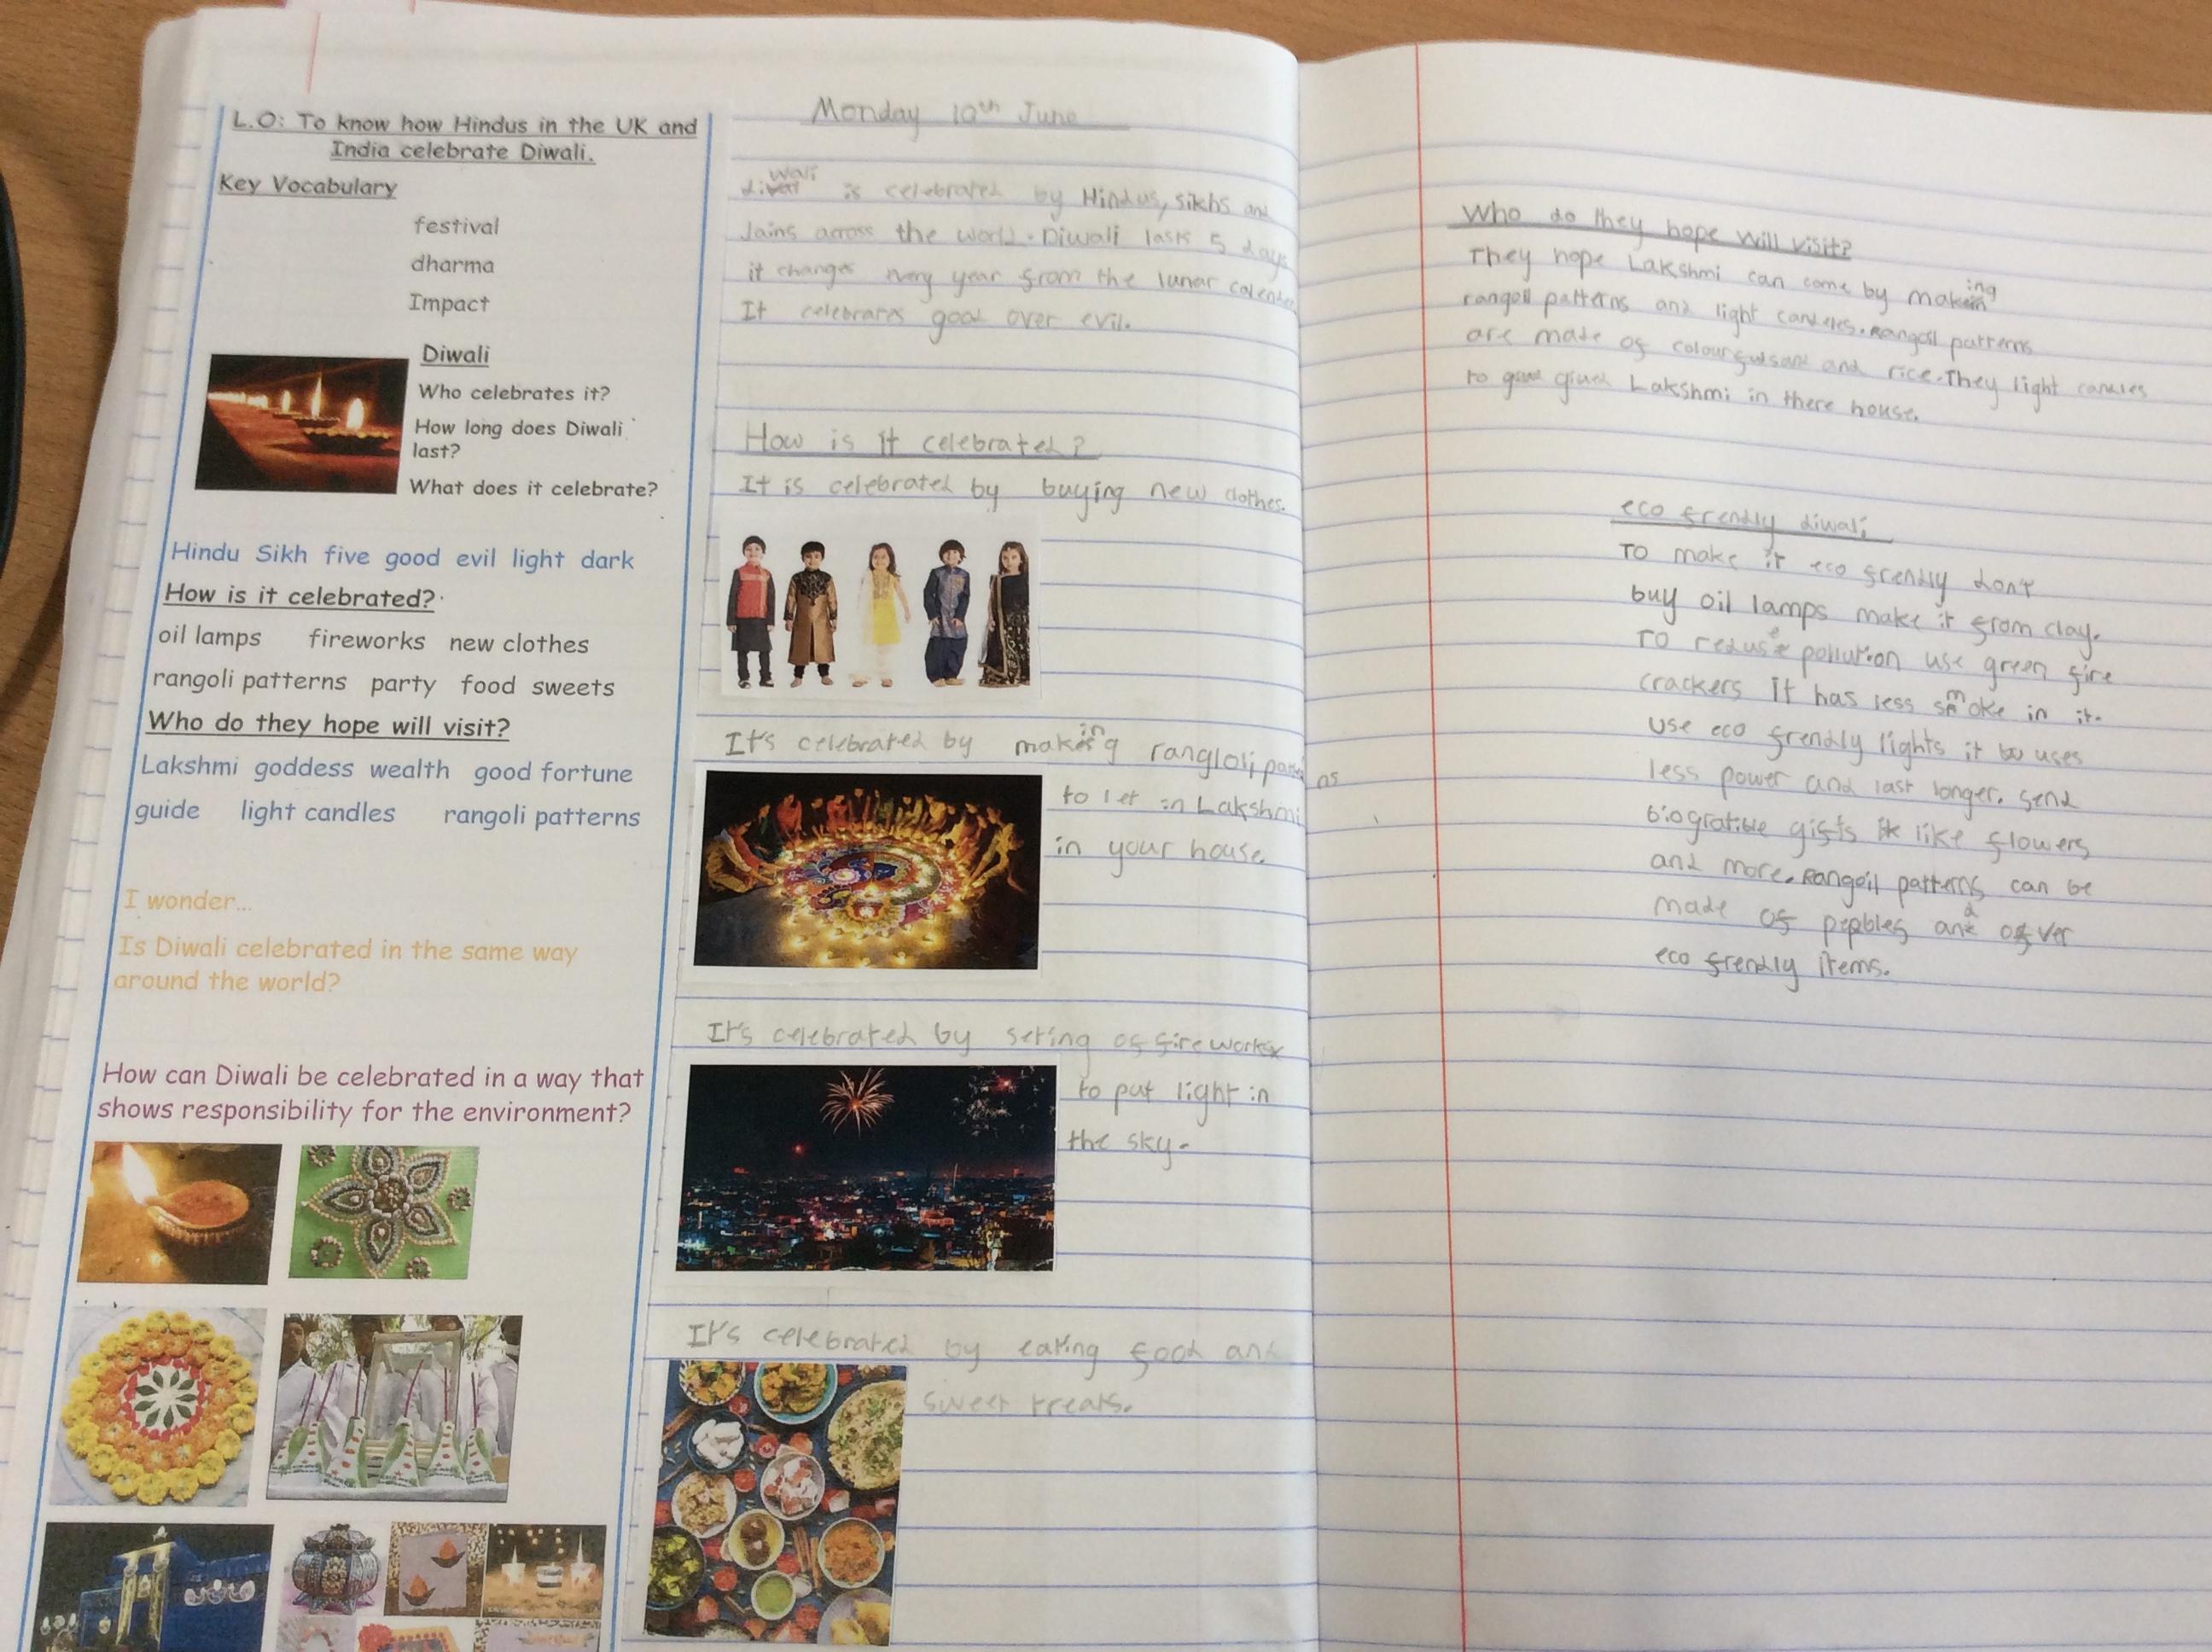 L.O: To know how Hindus in the UK and
India celebrate Diwali.
Key Vocabulary
festival
dharma
Impact
Diwali
Who celebrates it?
How long does Diwali
last?
What does it celebrate?
Hindu Sikh five good evil light dark
How is it celebrated?
oil lamps fireworks new clothes
rangoli patterns party food sweets
Who do they hope will visit?
Lakshmi goddess wealth good fortune
guide light candles rangoli patterns
I wonder...
Is Diwali celebrated in the same way
around the world?
How can Diwali be celebrated in a way that
shows responsibility for the environment?
Monday 10th June
diwali is celebrated by Hindus, sikhs and
Jains across the world. Diwali lasts 5 days
it changes every year from the lunar calender
It celebrates good over evil.
How is it celebrated?
It is celebrated by buying new clothes.
It's celebrated by making rangloli
to let in Lakshmi
in your house.
It's celebrated by seting of fireworks
to put light in
the sky.
It's celebrated by eating food and
sweet treats.
Who do they hope will visit?
They hope Lakshmi can come by making
rangoli patterns and light candeles. Rangoli patterns
are made of colourful and rice. They light candles
to Lakshmi in there house.
eco frendly diwali
To make it eco frendly don't
buy oil lamps make it from clay.
To reduse pollution use green fire
crackers it has less smoke in it.
use eco frendly lights it uses
less power and last longer. Send
biogratible gifts like flowers
and more. Rangoil patterns can be
made of pepbles and over
eco frendly items.